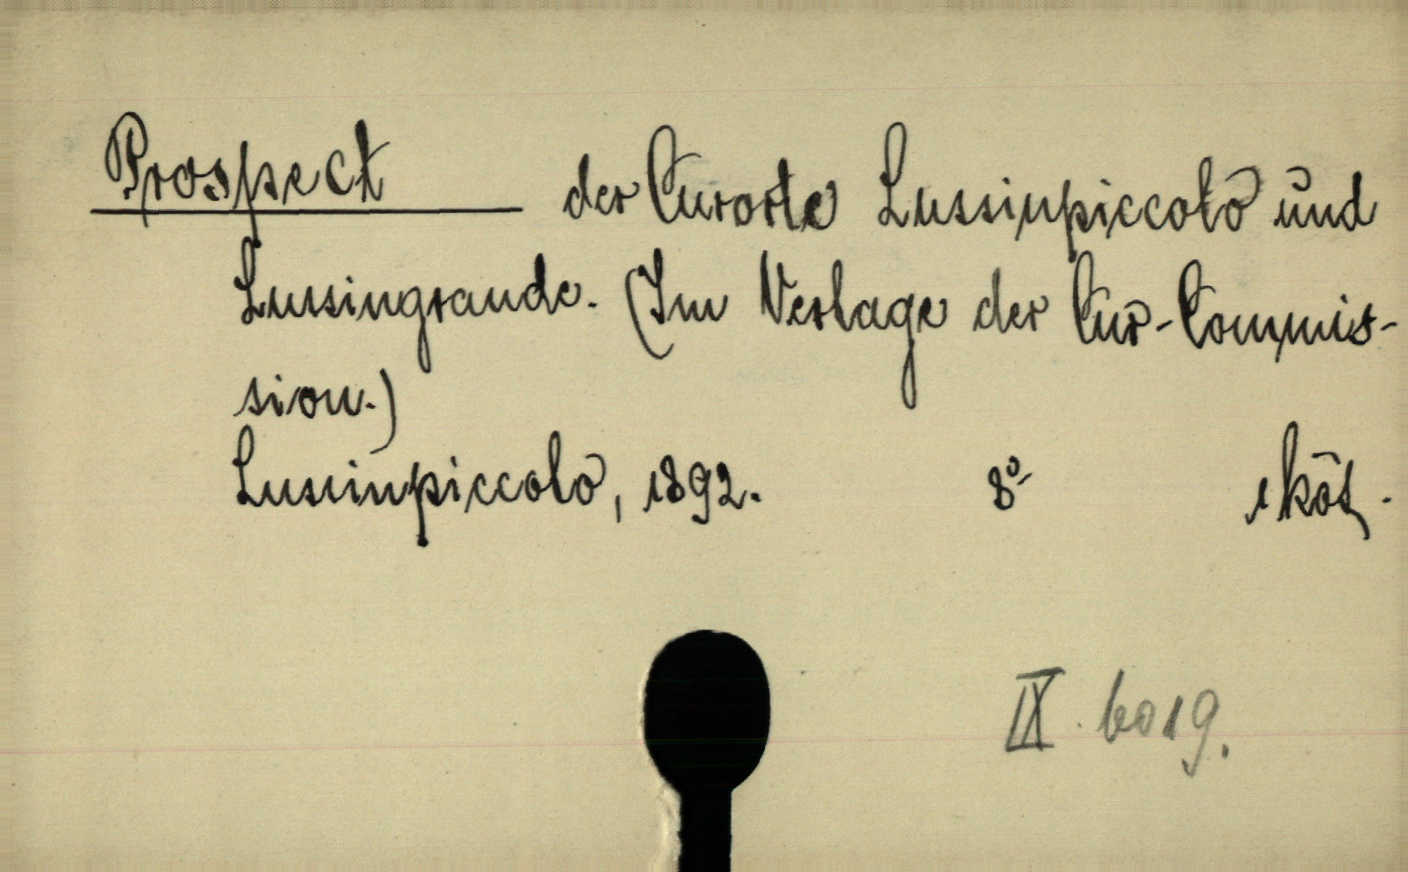 Prospect der Curorte Lussinpiccolo und
Lussingrande. (Im Verlage der Cur-Commis-
sion.)
Lussinpiccolo, 1892. 8º 1 köt.
IX. 6019.